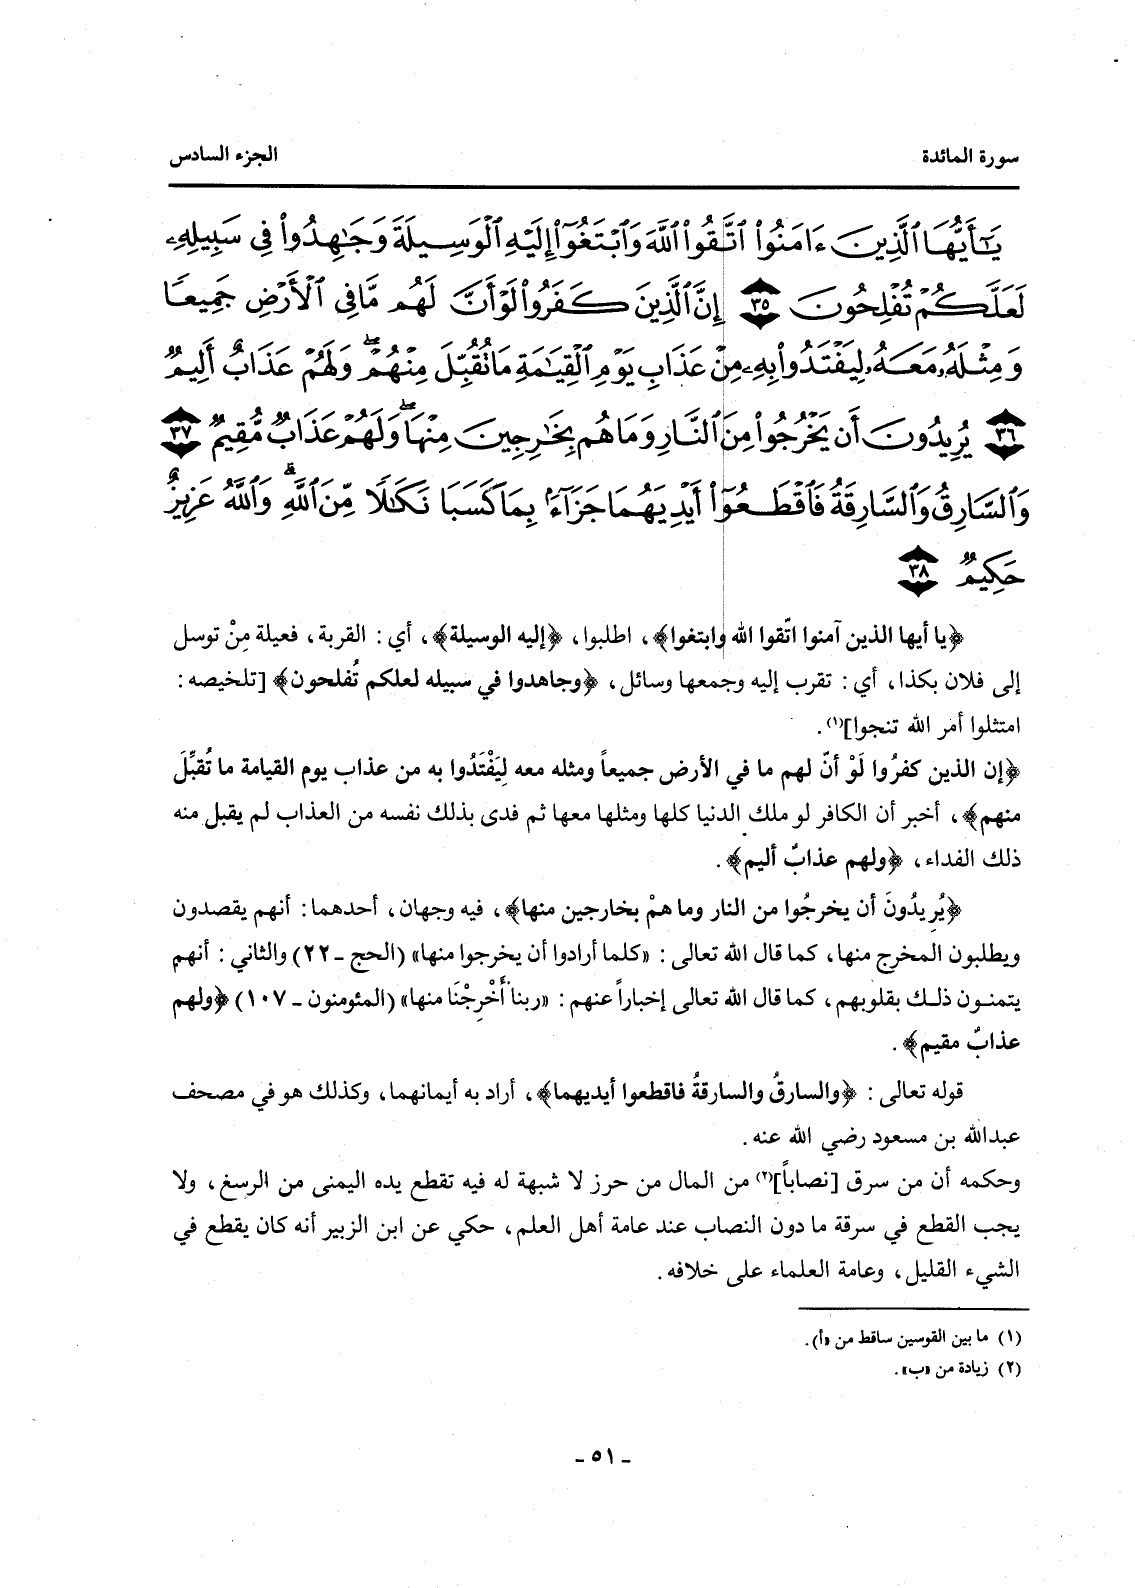 سورة المائدة
الجزء السادس
يَٰٓأَيُّهَا ٱلَّذِينَ ءَامَنُوا۟ ٱتَّقُوا۟ ٱللَّهَ وَٱبْتَغُوٓا۟ إِلَيْهِ ٱلْوَسِيلَةَ وَجَٰهِدُوا۟ فِى سَبِيلِهِۦ
لَعَلَّكُمْ تُفْلِحُونَ ٣٥ إِنَّ ٱلَّذِينَ كَفَرُوا۟ لَوْ أَنَّ لَهُم مَّا فِى ٱلْأَرْضِ جَمِيعًا
وَمِثْلَهُۥ مَعَهُۥ لِيَفْتَدُوا۟ بِهِۦ مِنْ عَذَابِ يَوْمِ ٱلْقِيَٰمَةِ مَا تُقُبِّلَ مِنْهُمْ ۖ وَلَهُمْ عَذَابٌ أَلِيمٌ
٣٦ يُرِيدُونَ أَن يَخْرُجُوا۟ مِنَ ٱلنَّارِ وَمَا هُم بِخَٰرِجِينَ مِنْهَا ۖ وَلَهُمْ عَذَابٌ مُّقِيمٌ ٣٧
وَٱلسَّارِقُ وَٱلسَّارِقَةُ فَٱقْطَعُوٓا۟ أَيْدِيَهُمَا جَزَآءًۢ بِمَا كَسَبَا نَكَٰلًا مِّنَ ٱللَّهِ ۗ وَٱللَّهُ عَزِيزٌ
حَكِيمٌ ٣٨
﴿يا أيها الذين آمنوا اتّقوا الله وابتغوا﴾، اطلبوا، ﴿إليه الوسيلة﴾، أي: القربة، فعيلة مِنْ توسل
إلى فلان بكذا، أي: تقرب إليه وجمعها وسائل، ﴿وجاهدوا في سبيله لعلكم تُفلحون﴾ [تلخيصه:
امتثلوا أمر الله تنجوا](١).
﴿إن الذين كفرُوا لَوْ أنّ لهم ما في الأرض جميعاً ومثله معه لِيَفْتَدُوا به من عذاب يوم القيامة ما تُقبِّلَ
منهم﴾، أخبر أن الكافر لو ملك الدنيا كلها ومثلها معها ثم فدى بذلك نفسه من العذاب لم يقبل منه
ذلك الفداء، ﴿ولهم عذابٌ أليم﴾.
﴿يُريدُونَ أن يخرجُوا من النار وما همْ بخارجين منها﴾، فيه وجهان، أحدهما: أنهم يقصدون
ويطلبون المخرج منها، كما قال الله تعالى: «كلما أرادوا أن يخرجوا منها» (الحج ـ ٢٢) والثاني: أنهم
يتمنون ذلك بقلوبهم، كما قال الله تعالى إخباراً عنهم: «ربنا أَخْرِجْنَا منها» (المؤمنون ـ ١٠٧) ﴿ولهم
عذابٌ مقيم﴾.
قوله تعالى: ﴿والسارقُ والسارقةُ فاقطعوا أيديهما﴾، أراد به أيمانهما، وكذلك هو في مصحف
عبدالله بن مسعود رضي الله عنه.
وحكمه أن من سرق [نصاباً](٢) من المال من حرز لا شبهة له فيه تقطع يده اليمنى من الرسغ، ولا
يجب القطع في سرقة ما دون النصاب عند عامة أهل العلم، حكي عن ابن الزبير أنه كان يقطع في
الشيء القليل، وعامة العلماء على خلافه.
(١) ما بين القوسين ساقط من «أ».
(٢) زيادة من «ب».
ـ ٥١ ـ